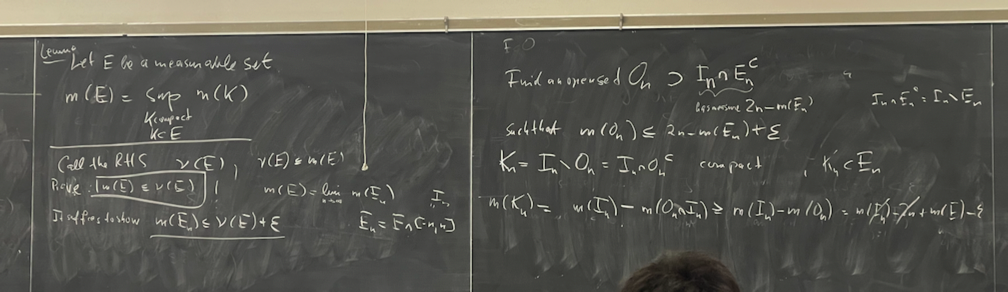 Lemma
Let E be a measurable set.
m(E) = sup m(K)
K compact
K⊂E
Call the RHS ν(E), ν(E) ≤ m(E)
Prove: m(E) ≤ ν(E) m(E) = lim m(E_n) I_n
n→∞
It suffices to show m(E_n) ≤ ν(E) + ε E_n = E∩[-n,n]
Find an open set O_n ⊃ I_n ∩ E_n^c
has measure 2n - m(E_n)
I_n∩E_n^c = I_n \ E_n
such that m(O_n) ≤ 2n - m(E_n) + ε
K_n = I_n \ O_n = I_n ∩ O_n^c compact, K_n ⊂ E_n
m(K_n) = m(I_n) - m(O_n∩I_n) ≥ m(I_n) - m(O_n) = m(I_n) - 2n + m(E) - ε